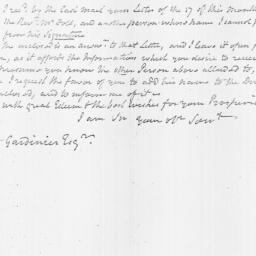 I rec.d by the last mail your Letter of the 17 of this Month
the Rev.d Mr Doll, and another person whose Name I cannot
from his Signature
The inclosed is an answ.r to that Letter, and I leave it open
as it affords the Information which you desire to
presume you know the other Person above alluded to,
I request the favor of you to add his name to the
inclosed, and to inform me of it
with great Esteem & the best Wishes for your
I am Sir Your Ob.t Serv.t
Gardinier Esq.r